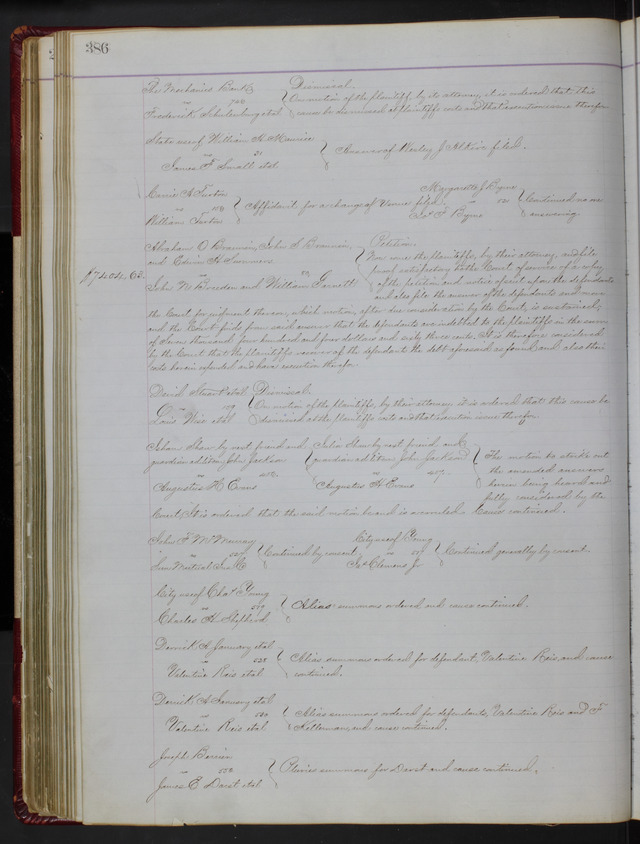 386
The Mechanics Bank
vs 746
Frederick Schulenburg etal
Dismissal.
On motion of the plaintiff, by its attorney, it is ordered that this
cause be dismissed at plaintiffs costs and that execution issue therefor.
State use of William H. Maurice
vs 21
James F. Small etal.
Answer of Wesley J. filed.
Carrie A. Fuston
vs
William Fuston
Affidavit for a change of Venue filed.
Margarette J. Byrne
vs 521
Jas. F. Byrne
Continued no one
answering.
Abraham O. Brannin, John S. Brannin,
and Edwin H. Summers
vs
John M. Breeden and William Garnett
$7404.63.
Petition.
Now come the plaintiffs, by their attorney, and file
proof satisfactory to the Court of service of a copy
of the petition and notice of suit upon the defendants
and also file the answer of the defendants and move
the Court for judgment thereon, which motion, after due consideration by the Court, is sustained;
and the Court finds from said answer that the defendants are indebted to the plaintiffs in the sum
of Seven thousand four hundred and four dollars and sixty three cents. It is therefore considered
by the Court that the plaintiffs recover of the defendants the debt aforesaid so found, and also their
costs herein expended and have execution therefor.
David Stewart etal
vs
Louis Wise etal
Dismissal.
On motion of the plaintiffs, by their attorney, it is ordered that this cause be
dismissed at the plaintiffs costs and that execution issue therefor.
Shaw by next friend and
guardian ad litem, John Jackson
vs
Augustus H. Evans
Julia Shaw by next friend and
guardian ad litem John Jackson
vs
Augustus H. Evans
The motion to strike out
the amended answers
herein being heard and
fully considered by the
Court, It is ordered that the said motion be and is overruled. Cause continued.
John F. McMurray
vs
Mutual Ins. Co
Continued by consent.
City use of Young
vs
Jas. Clemens Jr
Continued generally by consent.
City use of Chas. Young
vs
Charles H. Shepherd
Alias summons ordered and cause continued.
Derrick A. January etal
vs 528
Valentine Reis etal
Alias summons ordered for defendant, Valentine Reis, and cause
continued.
Derrick A. January etal
vs
Valentine Reis etal
Alias summons ordered for defendants, Valentine Reis and F.
Kelleman, and cause continued.
Joseph
vs
James E. Darst etal
Pluries summons for Darst and cause continued.